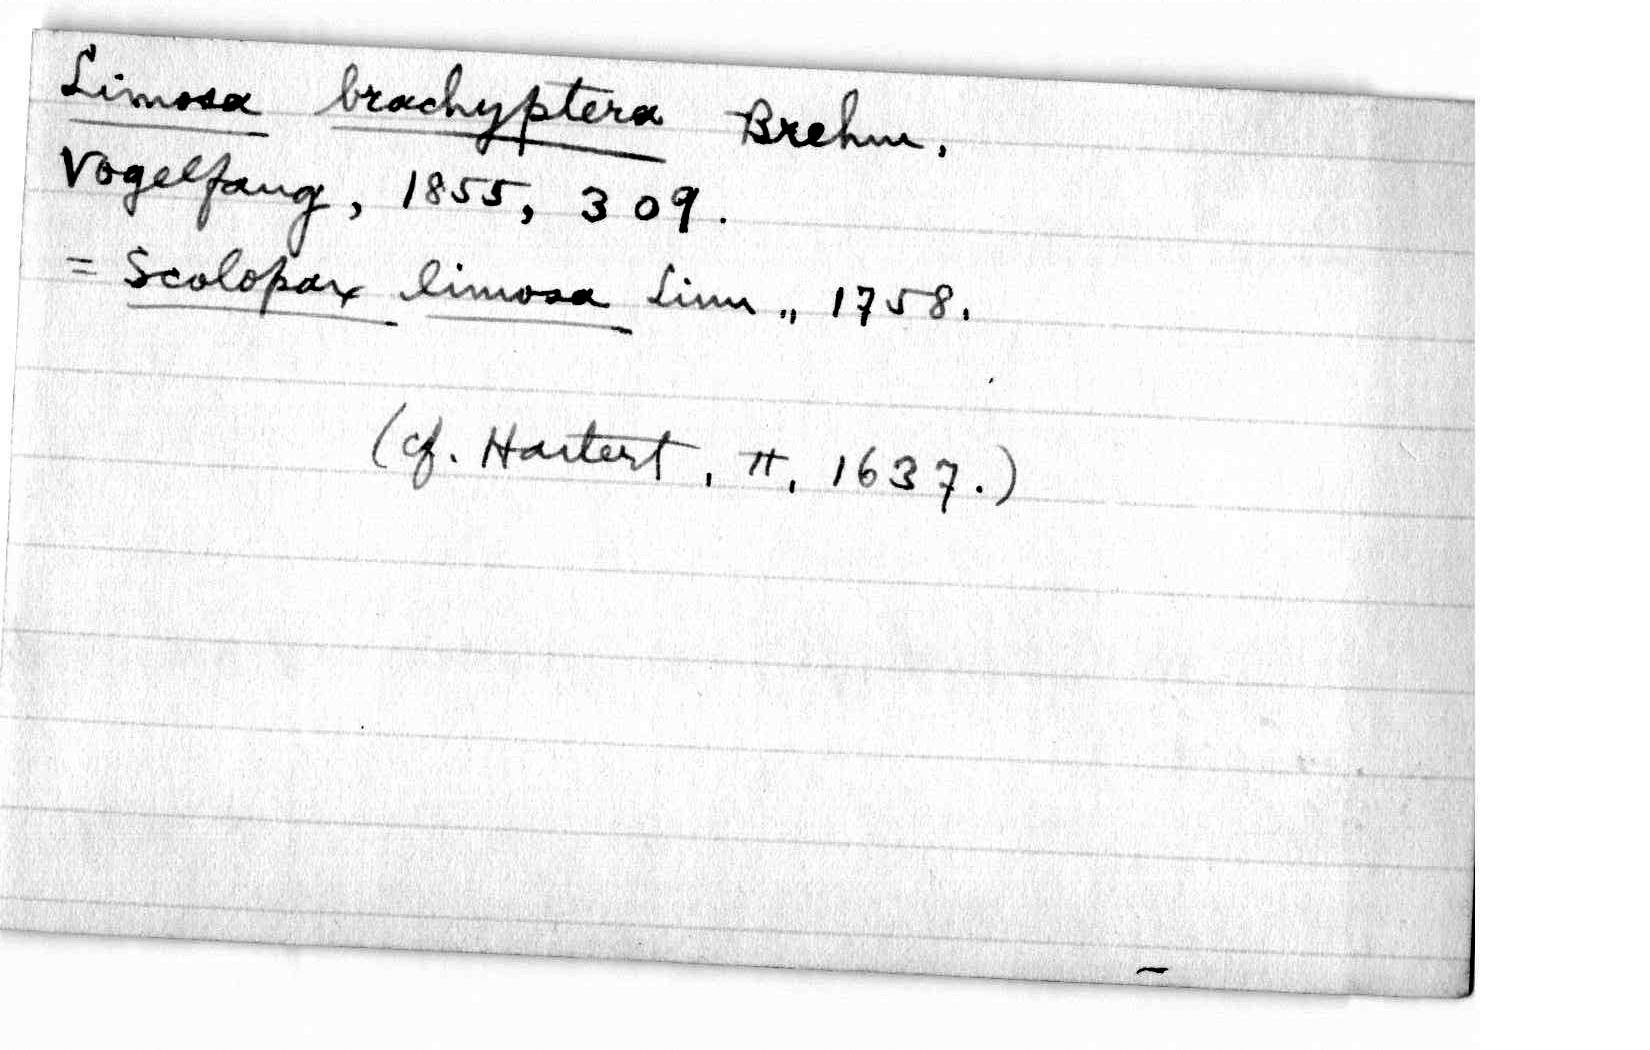 Limosa brachyptera Brehm,
Vogelfang, 1855, 309.
= Scolopax limosa Linn., 1758.
(cf. Hartert, II, 1637.)